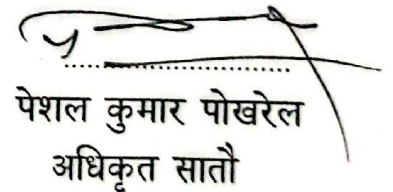 पेशल कुमार पोखरेल
अधिकृत सातौ